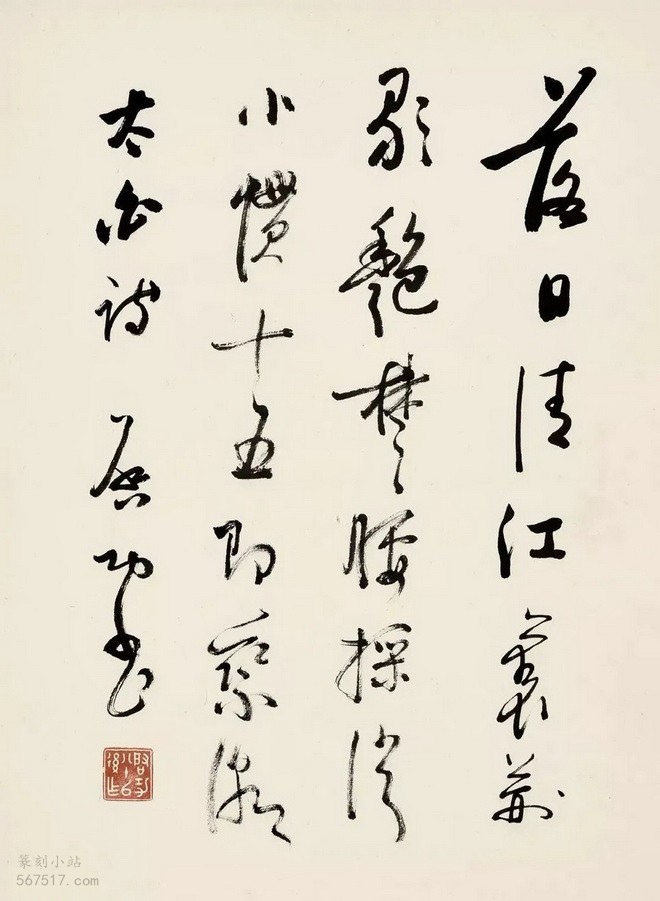 落日清江裏荆
歌艷楚腰採從
小慣十五即乘潮
太白詩 启功書
篆刻小站
567517.com